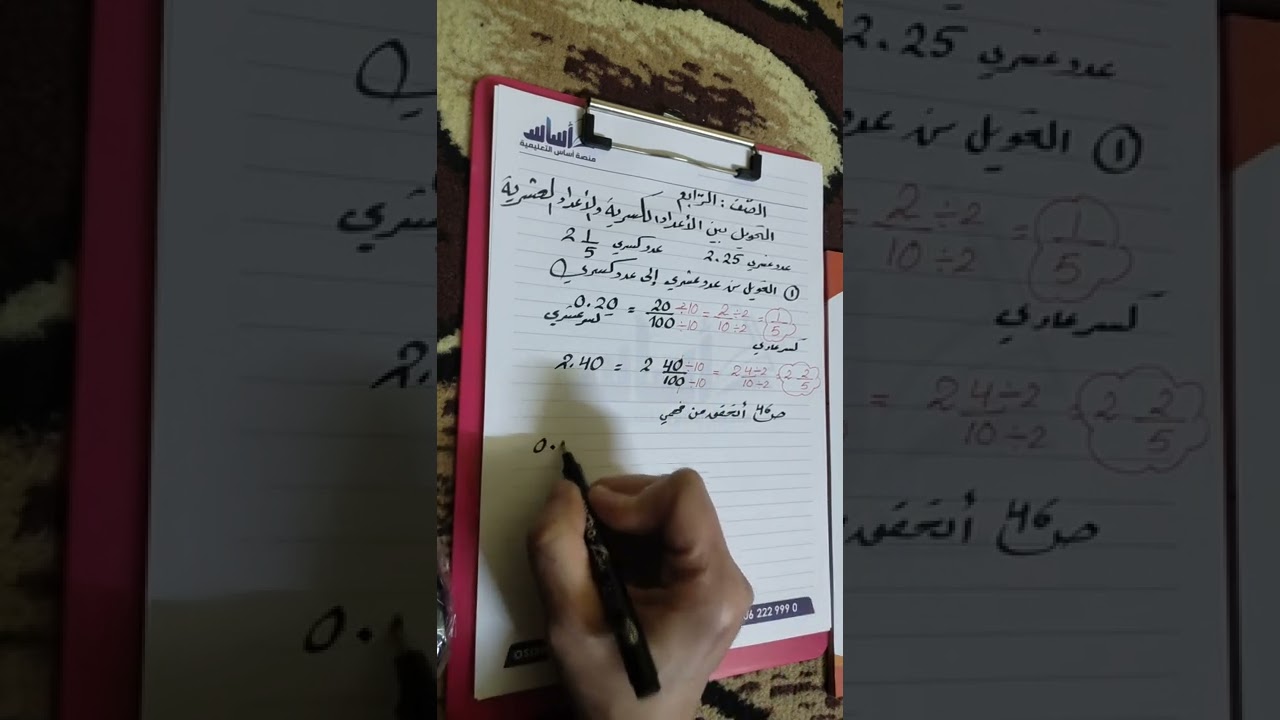 أساس
منصة أساس التعليمية
الصف : الرابع
التحويل بين الأعداد الكسرية والأعداد العشرية
عدد عشري 2.25 عدد كسري 2 1/5
① التحويل من عدد عشري إلى عدد كسري
0.20 = 20/100 ÷10/÷10 = 2÷2/10÷2 = 1/5
كسر عشري
كسر عادي
2.40 = 2 40/100 ÷10/÷10 = 2 4÷2/10÷2 = 2 2/5
ص46 أتحقق من فهمي
0.
06 222 999 0